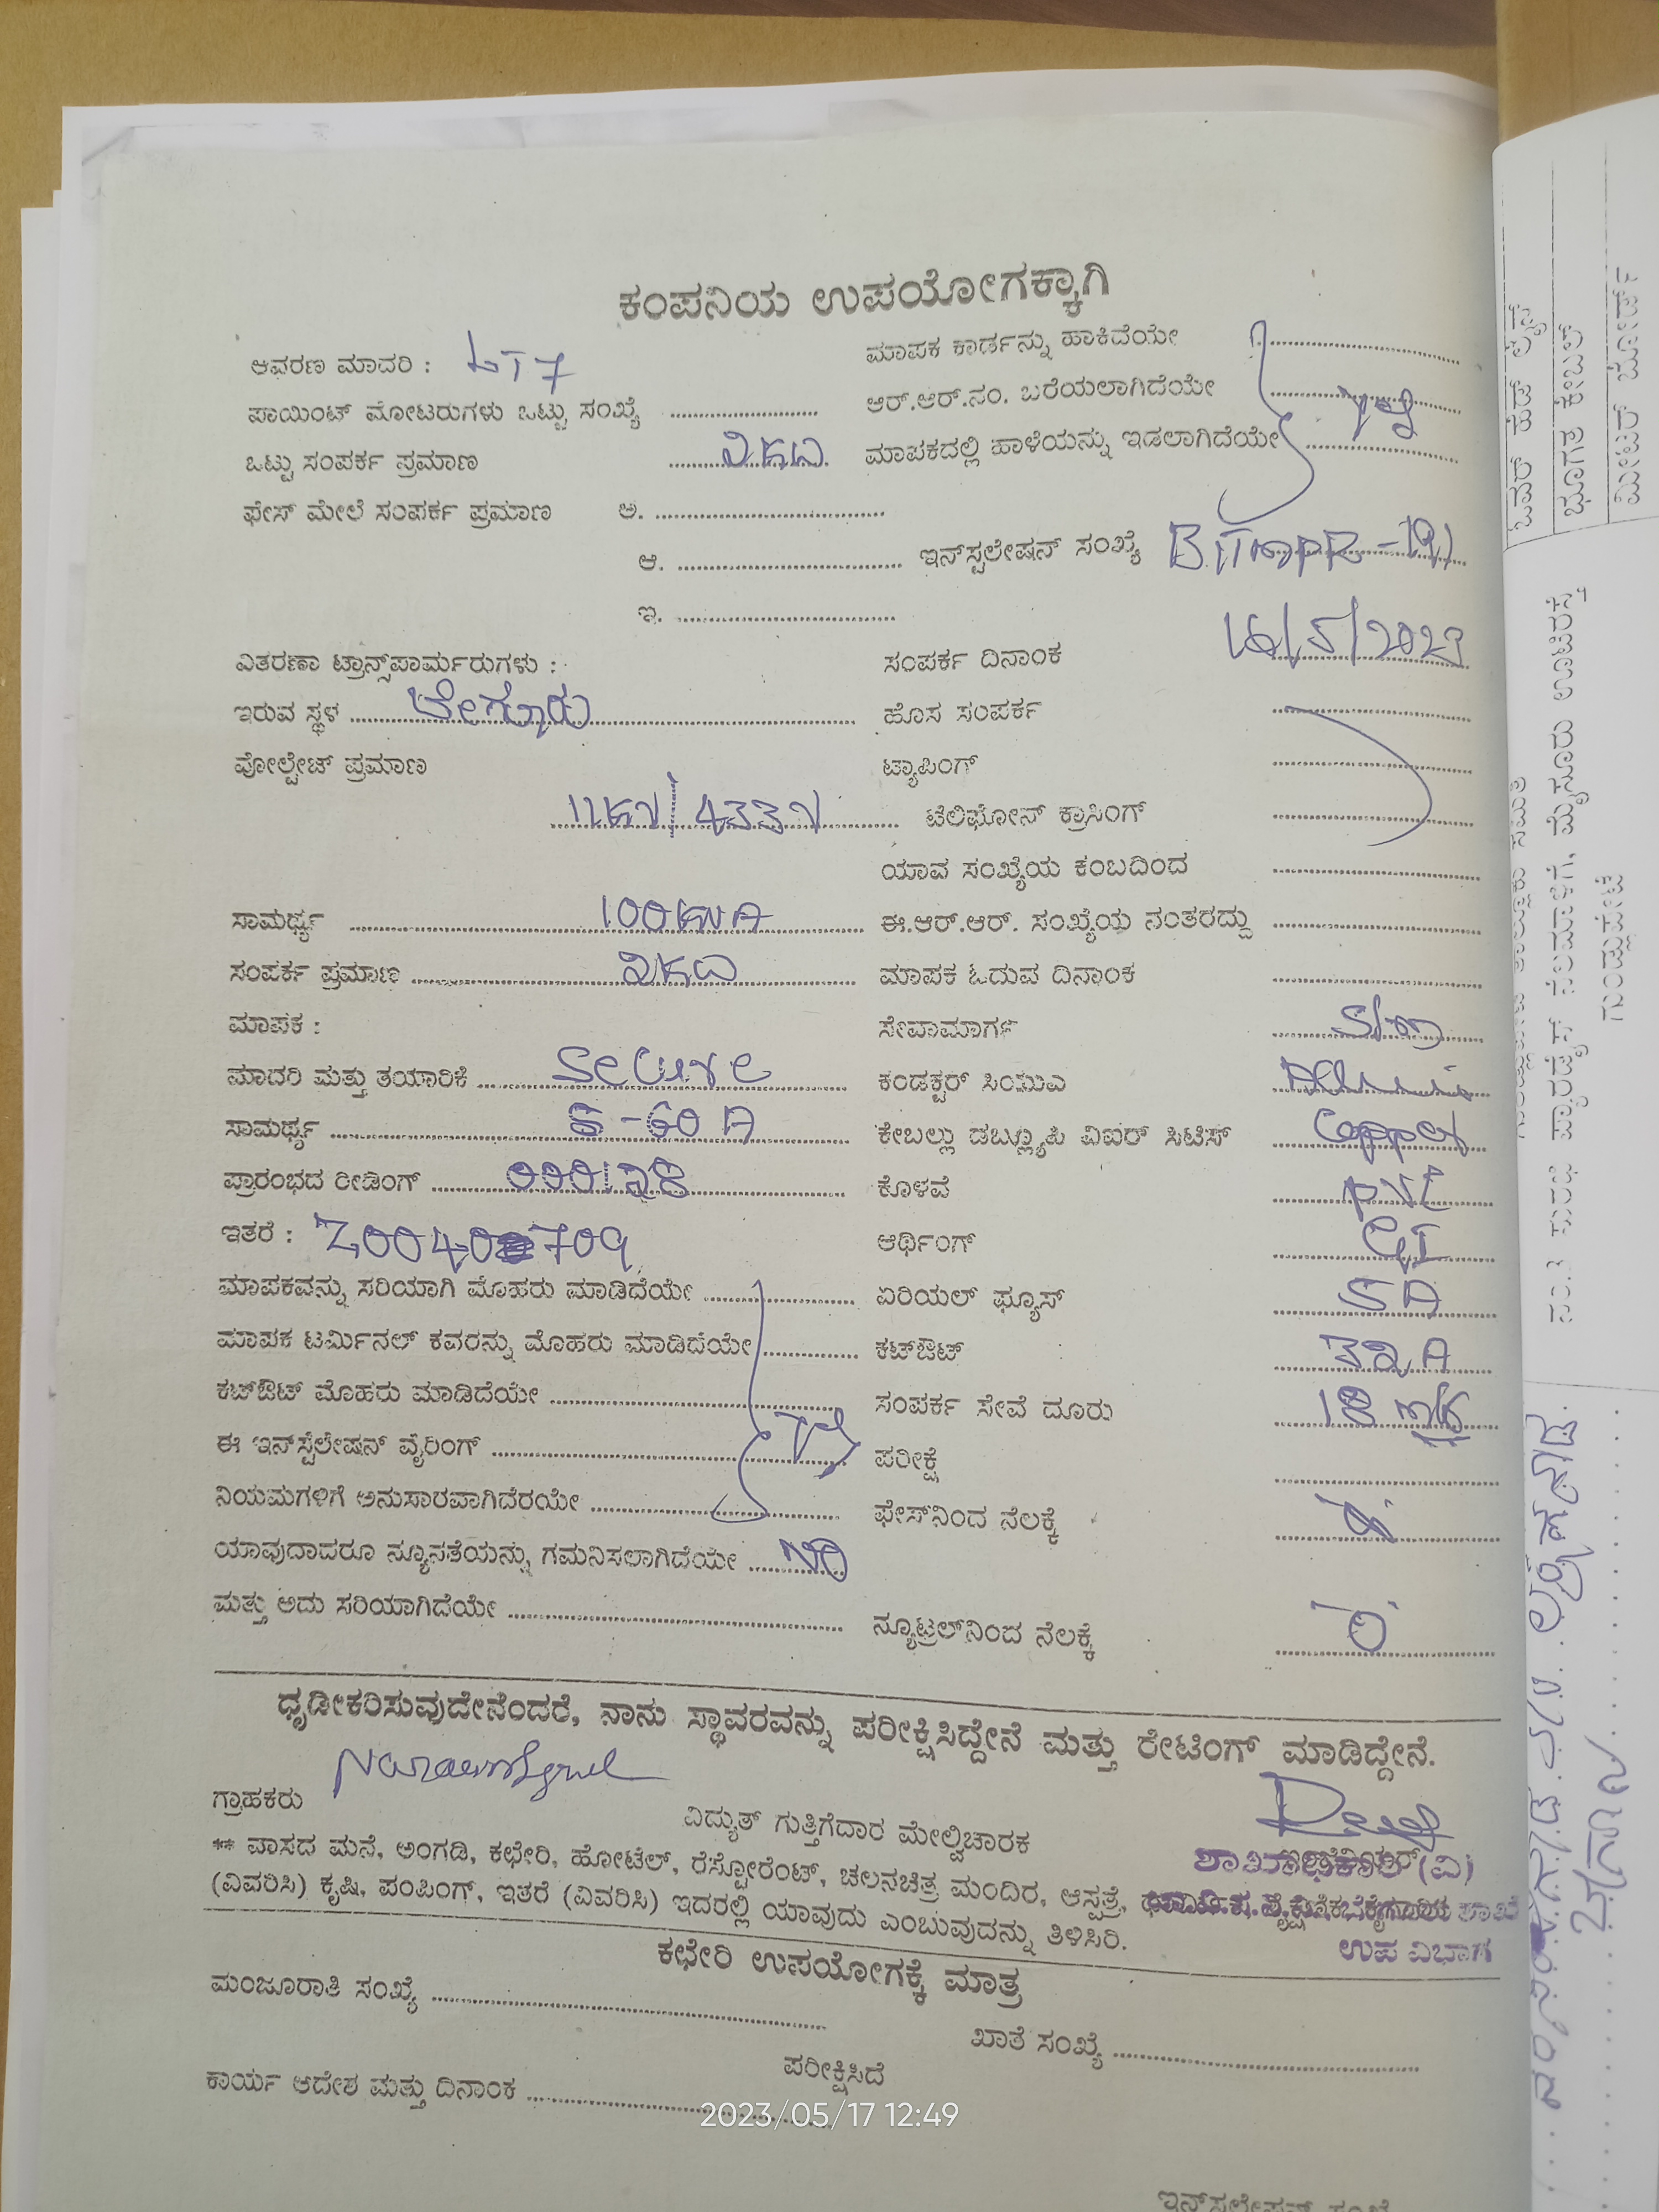 ಕಂಪನಿಯ ಉಪಯೋಗಕ್ಕಾಗಿ
ಆವರಣ ಮಾದರಿ : LT7
ಮಾಪಕ ಕಾರ್ಡನ್ನು ಹಾಕಿದೆಯೇ
ಪಾಯಿಂಟ್ ಮೋಟರುಗಳು ಒಟ್ಟು ಸಂಖ್ಯೆ
ಆರ್.ಆರ್.ನಂ. ಬರೆಯಲಾಗಿದೆಯೇ
ಒಟ್ಟು ಸಂಪರ್ಕ ಪ್ರಮಾಣ 2KW
ಮಾಪಕದಲ್ಲಿ ಹಾಳೆಯನ್ನು ಇಡಲಾಗಿದೆಯೇ
ಫೇಸ್ ಮೇಲೆ ಸಂಪರ್ಕ ಪ್ರಮಾಣ ಅ.
ಆ. ಇನ್‌ಸ್ಟಲೇಷನ್ ಸಂಖ್ಯೆ
ಇ.
ವಿತರಣಾ ಟ್ರಾನ್ಸ್‌ಪಾರ್ಮರುಗಳು :
ಸಂಪರ್ಕ ದಿನಾಂಕ 16/5/2023
ಇರುವ ಸ್ಥಳ ಬೇಗೂರು
ಹೊಸ ಸಂಪರ್ಕ
ವೋಲ್ಟೇಜ್ ಪ್ರಮಾಣ
ಟ್ಯಾಪಿಂಗ್
11KV/433V ಟೆಲಿಫೋನ್ ಕ್ರಾಸಿಂಗ್
ಯಾವ ಸಂಖ್ಯೆಯ ಕಂಬದಿಂದ
ಸಾಮರ್ಥ್ಯ 100KVA
ಈ.ಆರ್.ಆರ್. ಸಂಖ್ಯೆಯ ನಂತರದ್ದು
ಸಂಪರ್ಕ ಪ್ರಮಾಣ 2KW
ಮಾಪಕ ಓದುವ ದಿನಾಂಕ
ಮಾಪಕ :
ಸೇವಾಮಾರ್ಗ
ಮಾದರಿ ಮತ್ತು ತಯಾರಿಕೆ Secure
ಕಂಡಕ್ಟರ್ ಸಿಂಮಎ
ಸಾಮರ್ಥ್ಯ 5-60 A
ಕೇಬಲ್ಲು ಡಬ್ಲ್ಯೂಪಿ ವಿಐರ್ ಸಿಟಿಸ್ Copper
ಪ್ರಾರಂಭದ ರೀಡಿಂಗ್ 000128
ಕೊಳವೆ PVC
ಇತರೆ :
ಆರ್ಥಿಂಗ್ GI
ಮಾಪಕವನ್ನು ಸರಿಯಾಗಿ ಮೊಹರು ಮಾಡಿದೆಯೇ
ಏರಿಯಲ್ ಫ್ಯೂಸ್ 5A
ಮಾಪಕ ಟರ್ಮಿನಲ್ ಕವರನ್ನು ಮೊಹರು ಮಾಡಿದೆಯೇ
ಕಟ್‌ಔಟ್ 32A
ಕಟ್‌ಔಟ್ ಮೊಹರು ಮಾಡಿದೆಯೇ
ಸಂಪರ್ಕ ಸೇವೆ ದೂರು 18
ಈ ಇನ್‌ಸ್ಟಲೇಷನ್ ವೈರಿಂಗ್
ಪರೀಕ್ಷೆ
ನಿಯಮಗಳಿಗೆ ಅನುಸಾರವಾಗಿದೆರಯೇ
ಫೇಸ್‌ನಿಂದ ನೆಲಕ್ಕೆ
ಯಾವುದಾದರೂ ನ್ಯೂನತೆಯನ್ನು ಗಮನಿಸಲಾಗಿದೆಯೇ NO
ಮತ್ತು ಅದು ಸರಿಯಾಗಿದೆಯೇ
ನ್ಯೂಟ್ರಲ್‌ನಿಂದ ನೆಲಕ್ಕೆ
ಧೃಡೀಕರಿಸುವುದೇನೆಂದರೆ, ನಾನು ಸ್ಥಾವರವನ್ನು ಪರೀಕ್ಷಿಸಿದ್ದೇನೆ ಮತ್ತು ರೇಟಿಂಗ್ ಮಾಡಿದ್ದೇನೆ.
ಗ್ರಾಹಕರು
ವಿದ್ಯುತ್ ಗುತ್ತಿಗೆದಾರ ಮೇಲ್ವಿಚಾರಕ
** ವಾಸದ ಮನೆ, ಅಂಗಡಿ, ಕಛೇರಿ, ಹೋಟೆಲ್, ರೆಸ್ಟೋರೆಂಟ್, ಚಲನಚಿತ್ರ ಮಂದಿರ, ಆಸ್ಪತ್ರೆ,
(ವಿವರಿಸಿ) ಕೃಷಿ, ಪಂಪಿಂಗ್, ಇತರೆ (ವಿವರಿಸಿ) ಇದರಲ್ಲಿ ಯಾವುದು ಎಂಬುವುದನ್ನು ತಿಳಿಸಿರಿ.
ಉಪ ವಿಭಾಗ
ಕಛೇರಿ ಉಪಯೋಗಕ್ಕೆ ಮಾತ್ರ
ಮಂಜೂರಾತಿ ಸಂಖ್ಯೆ
ಖಾತೆ ಸಂಖ್ಯೆ
ಪರೀಕ್ಷಿಸಿದೆ
ಕಾರ್ಯ ಆದೇಶ ಮತ್ತು ದಿನಾಂಕ
2023/05/17 12:49
ಇನ್‌ಸ್ಟಲೇಷನ್ ಸಂಖ್ಯೆ
ಭೂಗತ ಕೇಬಲ್
ಮೀಟರ್ ಬೋರ್ಡ್
ಗುಂಡ್ಲುಪೇಟೆ